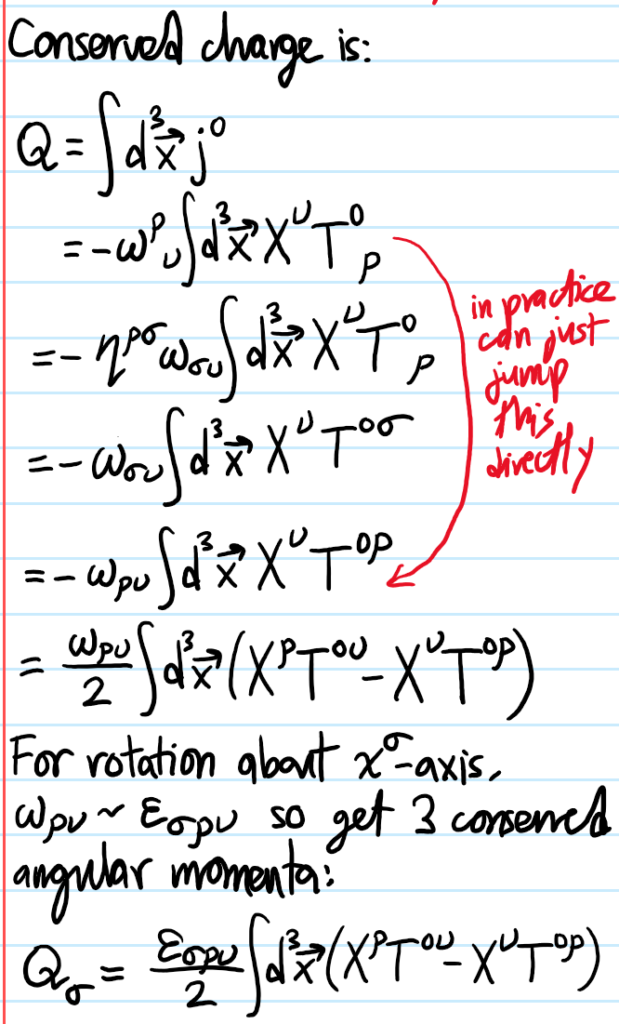 Conserved charge is:
Q = ∫d³x⃗ j⁰
= -ω^ρ_ν ∫d³x⃗ X^ν T^0_ρ
= -η^{ρσ} ω_{σν} ∫d³x⃗ X^ν T^0_ρ
= -ω_{σν} ∫d³x⃗ X^ν T^{0σ}
= -ω_{ρν} ∫d³x⃗ X^ν T^{0ρ}
in practice
can just
jump
this
directly
= ω_{ρν}/2 ∫d³x⃗ (X^ρ T^{0ν} - X^ν T^{0ρ})
For rotation about x^σ-axis,
ω_{ρν} ~ ε_{σρν} so get 3 conserved
angular momenta:
Q_σ = ε_{σρν}/2 ∫d³x⃗ (X^ρ T^{0ν} - X^ν T^{0ρ})